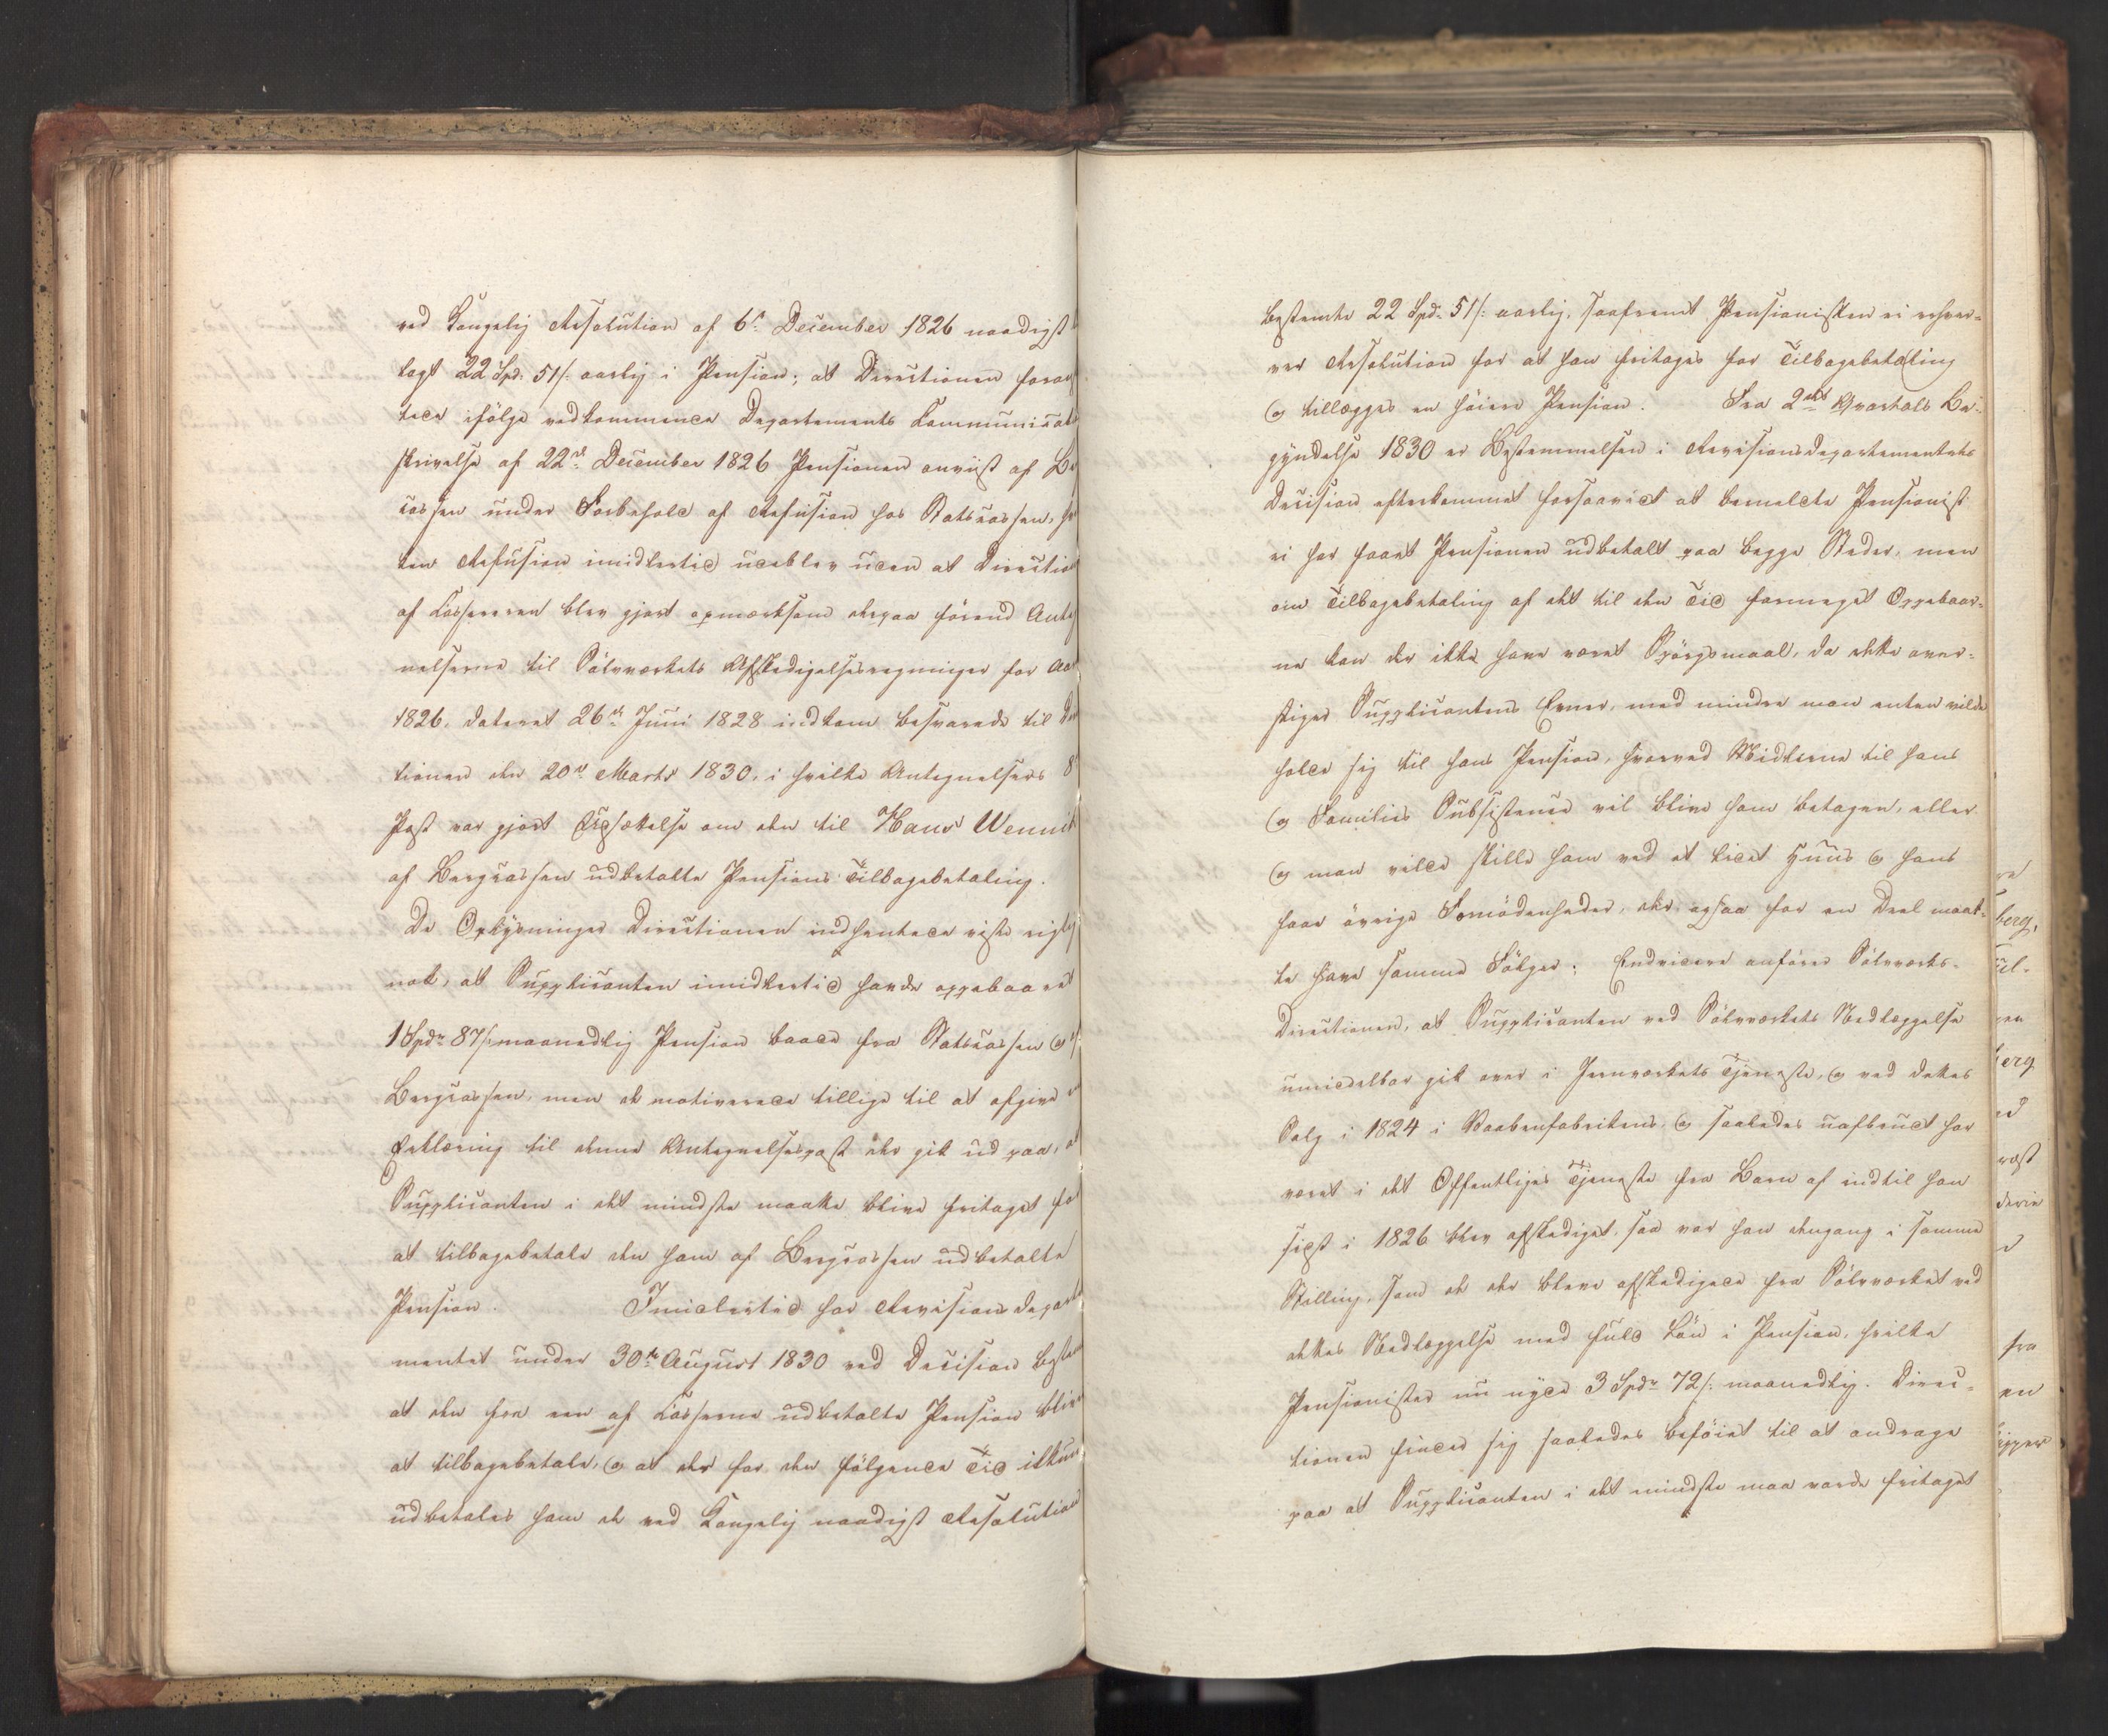 ved Kongelig Resolution af 6te December 1826 naadigst
lagt 22 Spd. 51 ß. aarlig i Pension; at Directionen foran
ledi ifølge vedkommende Departements Communicat
skrivelse af 22de December 1826 Pensionen anviist af Be
cassen under Forbehold af Refusion hos Statscassen, hv
ken Refusion imidlertid udeblev uden at Direction
af Kassereren blev gjort opmærksom derpaa førend Anteg
nelserne til Sølvværkets Afskedigelsesregninger for Aar
1826, dateret 26de Juni 1828 indkom besvarede til Dir
tionen den 20de Marts 1830, i hvilke Antegnelsers 8
Post var gjort Udsættelse om den til Hans Wennik
af Bergcassen udbetalte Pensions Tilbagebetaling.
De Oplysninger Directionen indhentede viste rigtig
nok, at Supplicanten imidlertid havde oppebaaret
1 Spdr 87 ß. maanedlig Pension baade fra Statscassen og
Bergcassen, men de motiverede tillige til at afgive en
Erklæring til denne Antegnelsespost der gik ud paa, at
Supplicanten i det mindste maatte blive fritaget for
at tilbagebetale den ham af Bergcassen udbetalte
Pension. Imidlertid har Revisions departe
mentet under 30te August 1830 ved Decision bestemt
at den fra een af Kasserne udbetalte Pension bliver
at tilbagebetale, og at der for den følgende Tid ikkun
udbetales ham de ved Kongelig naadigst Resolution
bestemte 22 Spd. 51 ß. aarlig, saafremt Pensionisten ei erhver-
ver Resolution for at han fritages for Tilbagebetaling
og tillægges en høiere Pension. Fra 2det Qvartals Be-
gyndelse 1830 er Bestemmelsen i Revisionsdepartementets
Decision efterkommet forsaavidt at bemeldte Pensionist
ei har faaet Pensionen udbetalt paa begge Steder, men
om Tilbagebetaling af det til den Tid formeget Oppebaar-
ne kan der ikke have været Spörgsmaal, da dette over-
stiger Supplicantens Evner, med mindre man enten vilde
holde sig til hans Pension, hvorved Midlerne til hans
og Families Subsistence vil blive ham betagen, eller
og man vilde skille ham ved et lidet Huus og hans
faae øvrige Fornødenheder, der ogsaa for en Deel maat-
te have samme Følger; Endvidere anfører Sølvværks-
Directionen, at Supplicanten ved Sølvværkets Nedlæggelse
umiddelbar gik over i Jernværkets Tjeneste, og ved dettes
Salg i 1824 i Vaabenfabrikens og saaledes uafbrudt har
været i det Offentliges Tjeneste fra Barn af indtil han
sidst i 1826 blev afskediget, saa var han dengang i samme
Stilling, som de der bleve afskedigede fra Sølvværket ved
dettes Nedlæggelse med fuld Løn i Pension, hvilke
Pensionister nu nyde 3 Spdr 72 ß. maanedlig. Direc-
tionen finder sig saaledes beføiet til at andrage
paa at Supplicanten i det mindste maa vorde fritaget
berg,
fra
en